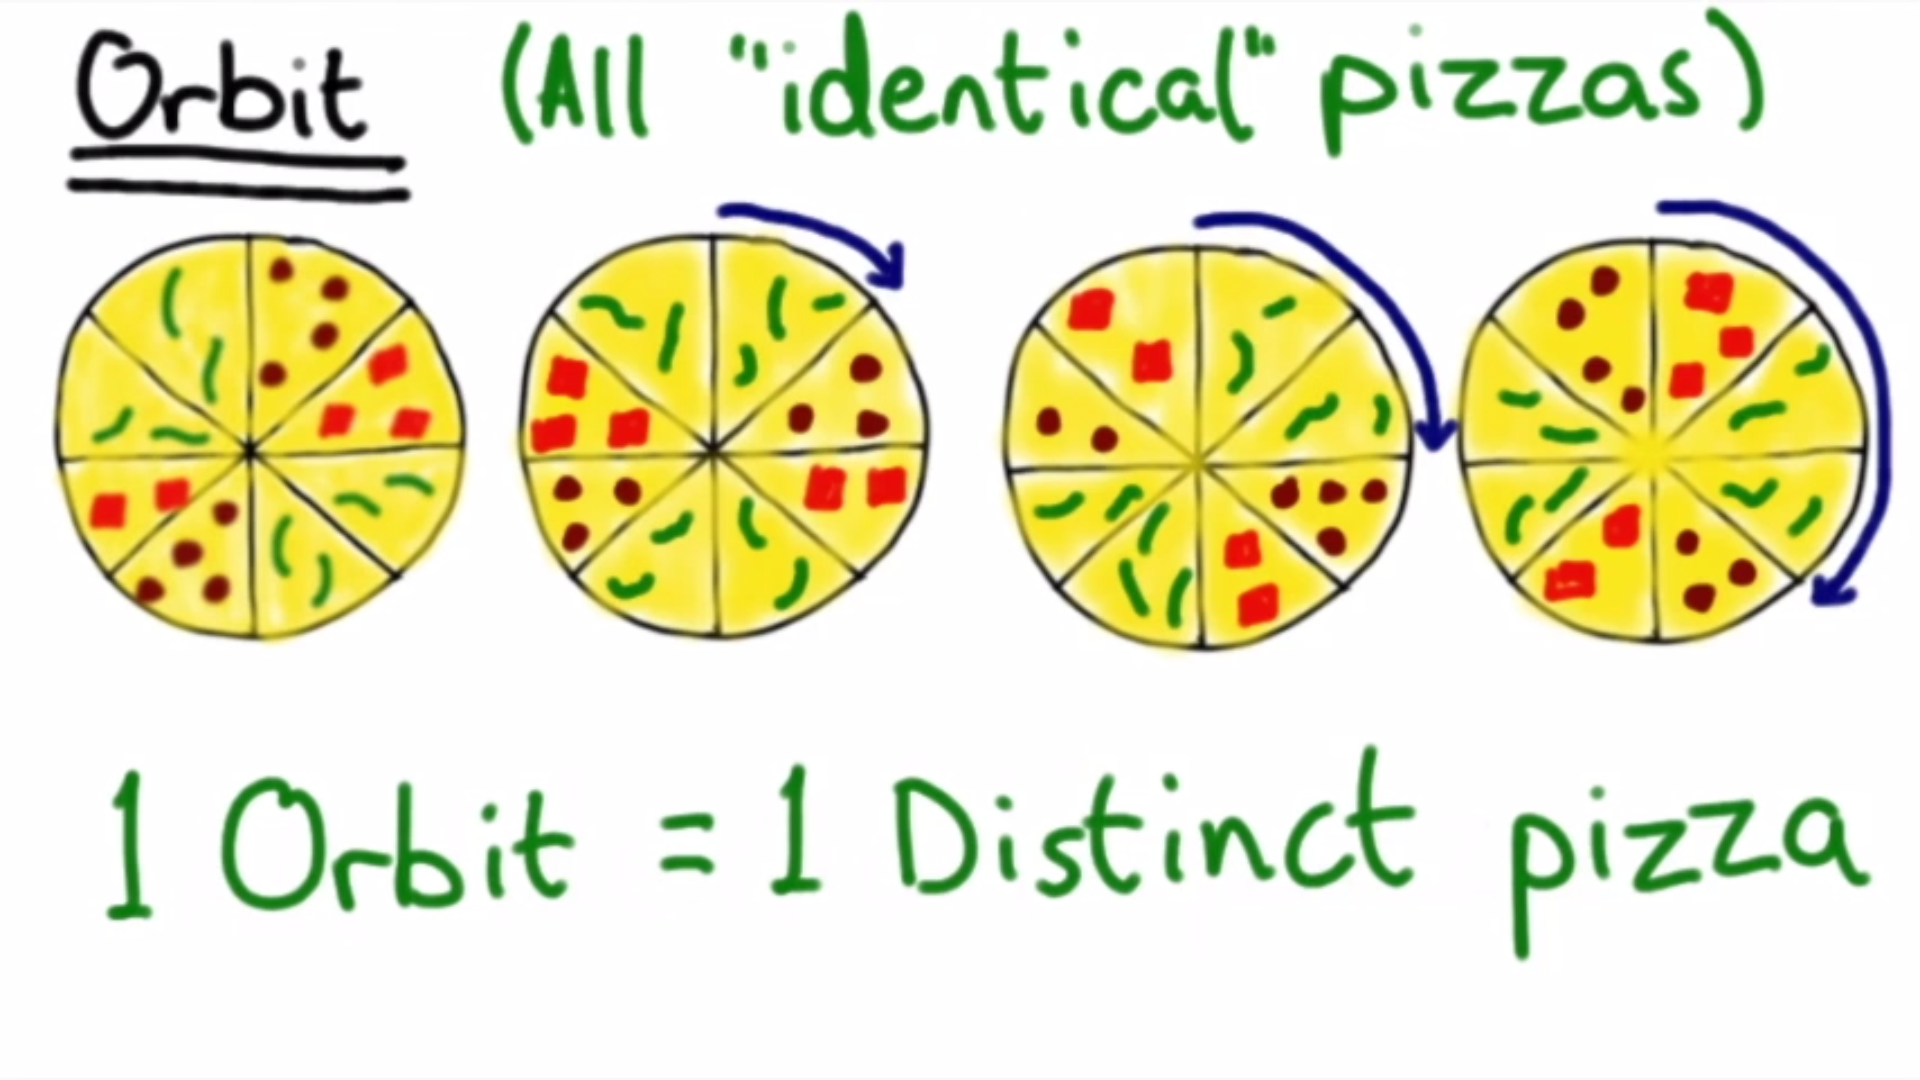 Orbit (All "identical" pizzas)
1 Orbit = 1 Distinct pizza